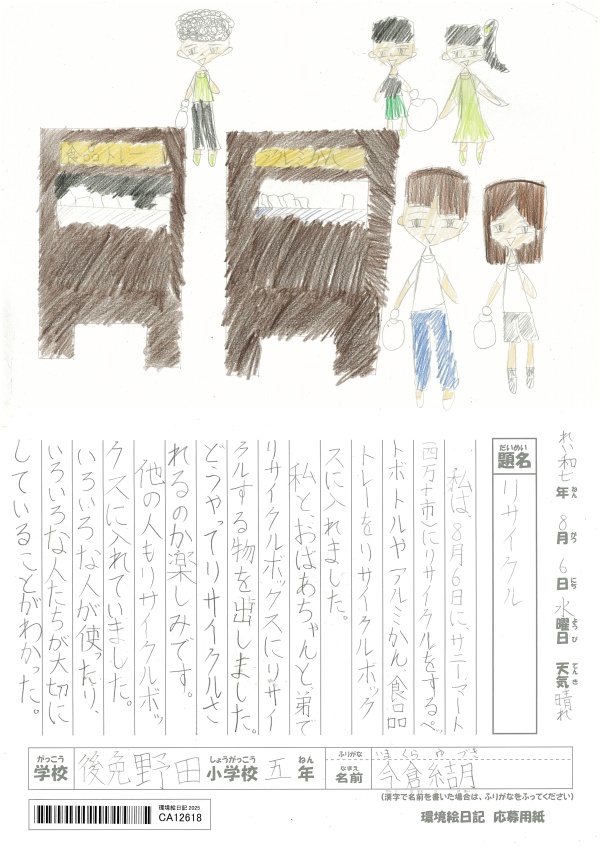 食品トレー
アルミかん
れい和七年 8月 6日 水曜日 天気 晴れ
ねん がつ にち ようび てんき
だいめい
題名
リサイクル
私は、8月6日に、サニーマート
(四万十市)にリサイクルをするペッ
トボトルやアルミかん、食品
トレーをリサイクルボック
スに入れました。
私と、おばあちゃんと、弟で
リサイクルボックスにリサイ
クルする物を出しました。
どうやってリサイクルさ
れるのか楽しみです。
他の人もリサイクルボッ
クスに入れていました。
いろいろな人が使ったり、
いろいろな人たちが大切に
していることがわかった。
がっこう しょうがっこう ねん
学校 後免野田 小学校 五年
ふりがな いまくら ゆづき
なまえ
名前 今倉結月
(漢字で名前を書いた場合は、ふりがなをふってください)
環境絵日記 2025
CA12618
環境絵日記 応募用紙